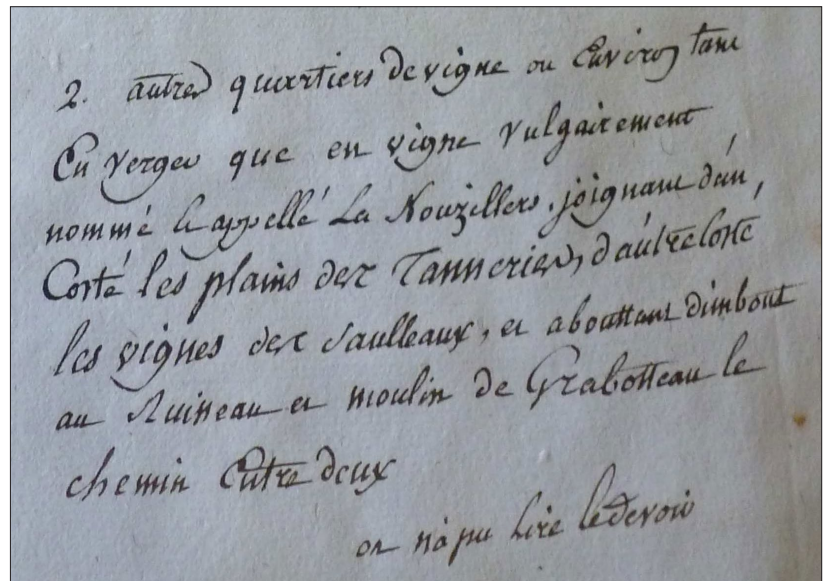 2. autres quartiers de vigne ou Environ tant
En verger que en vigne vulgairement
nommé et appellé La Nouzillere, joignant d'un,
Costé les plains des Tanneries, d'autre Costé
les vignes des Saulleaux, et abouttant d'un bout
au Ruineau et moulin de Grabotteau le
chemin Entre deux
on n'a pu Lire le devoir